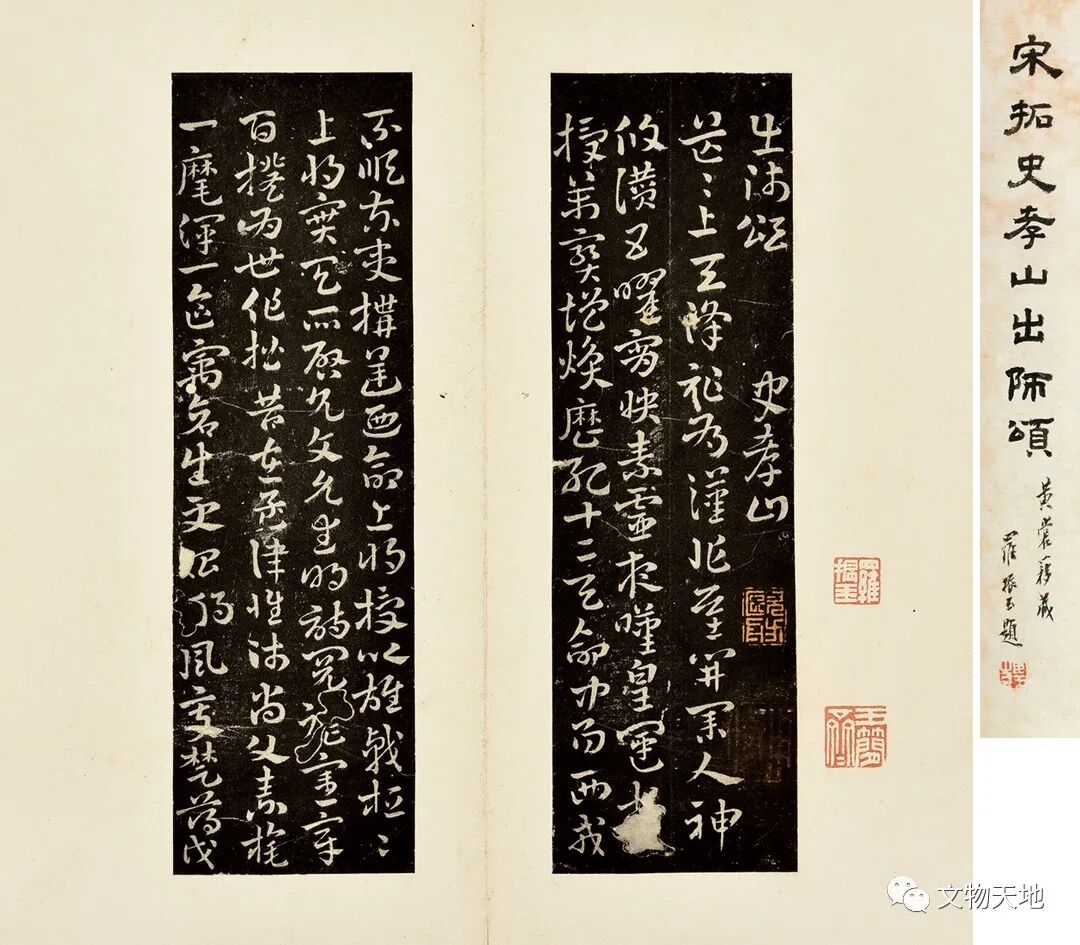 宋拓史孝山出師頌
羅振玉題
出師頌 史孝山
茫〻上天降祚有漢兆基開業人神
攸讚五曜宵映素靈夜嘆皇運来
授萬寶增煥歷紀十二天命中易西戎
不順東夷搆逆西命上將授以雄戟桓〻
上將實天所啓允文允武明詩閱禮憲章
百揆為世作楷昔在孟津惟師尚父素旄
一麾渾一區宇蒼生更始朔風變楚薄伐
羅振玉
文物天地